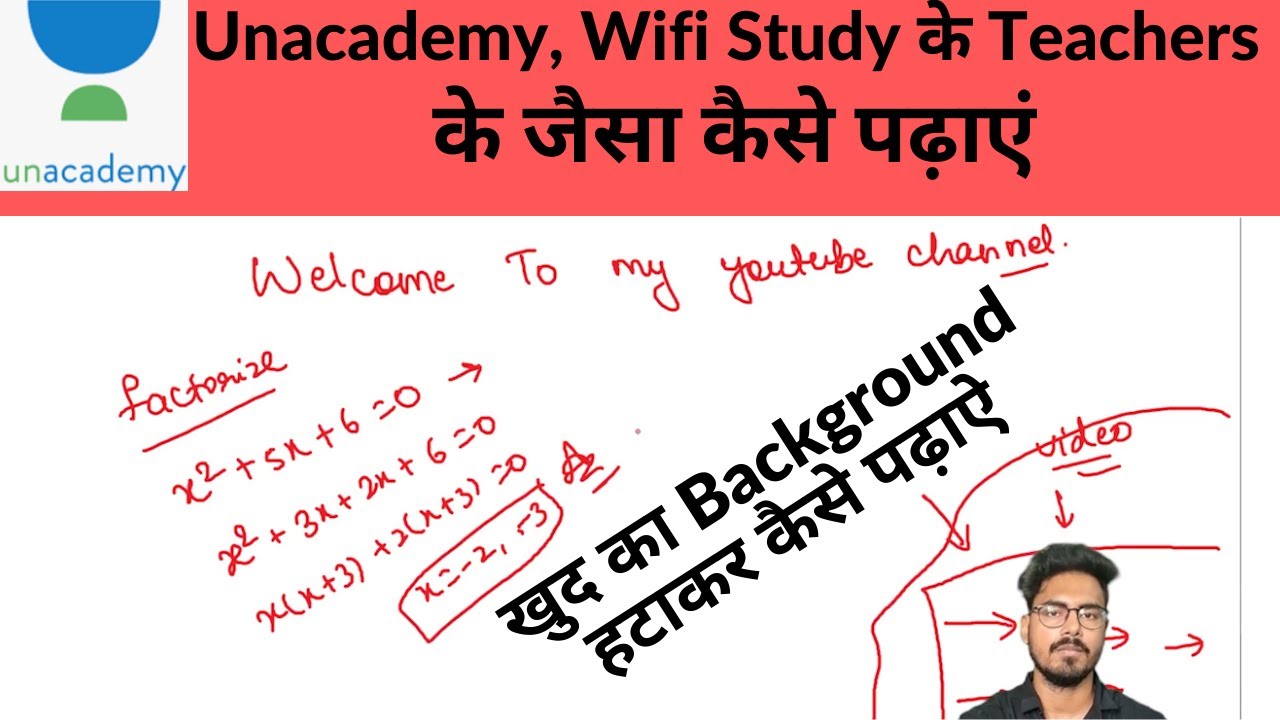 Unacademy, Wifi Study के Teachers
के जैसा कैसे पढ़ाएं
unacademy
Welcome To my youtube channel.
factorize
x² + 5x + 6 = 0 →
x² + 3x + 2x + 6 = 0
x(x+3) + 2(x+3) = 0
x = -2, -3
खुद का Background
हटाकर कैसे पढ़ाऐ
video